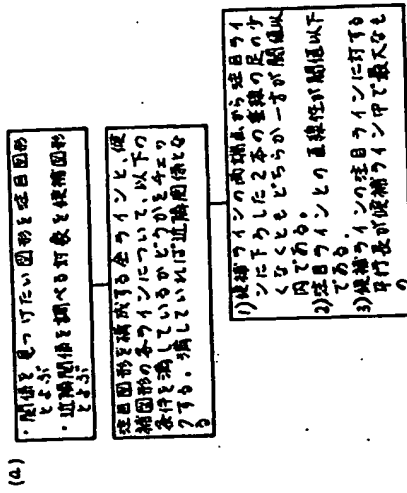 (a)
・関係を見つけたい図形を注目図形
とよぶ
・近隣関係を調べる対象を候補図形
とよぶ
注目図形を構成する全ラインと、候
補図形の各ラインについて、以下の
条件を満しているかどうかをチェッ
クする。満していれば近隣関係とな
る
1)候補ラインの両端点から注目ライ
ンに下ろした2本の垂線の足の少
くなくともどちらか一方が閾値以
内である。
2)注目ラインとの直線性が閾値以下
である。
3)候補ラインの注目ラインに対する
平行長が候補ライン中で最大なも
の